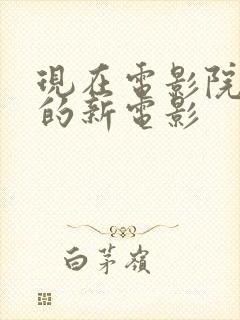 現在電影院
的新電影
白茅嶺